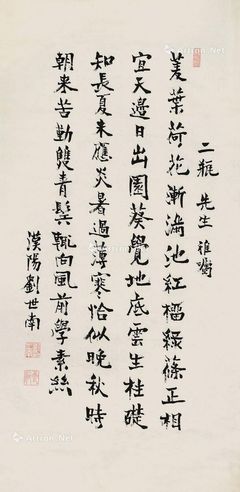 二瓶 先生 雅
菱葉荷花漸滿池紅榴綠篠正相
宜天邊日出園葵覺地底雲生柱礎
知長夏未應炎暑過薄寒恰似晚秋時
朝来苦勤雙青鬓輒向風前學素絲
漢陽劉世南
Artron.Net